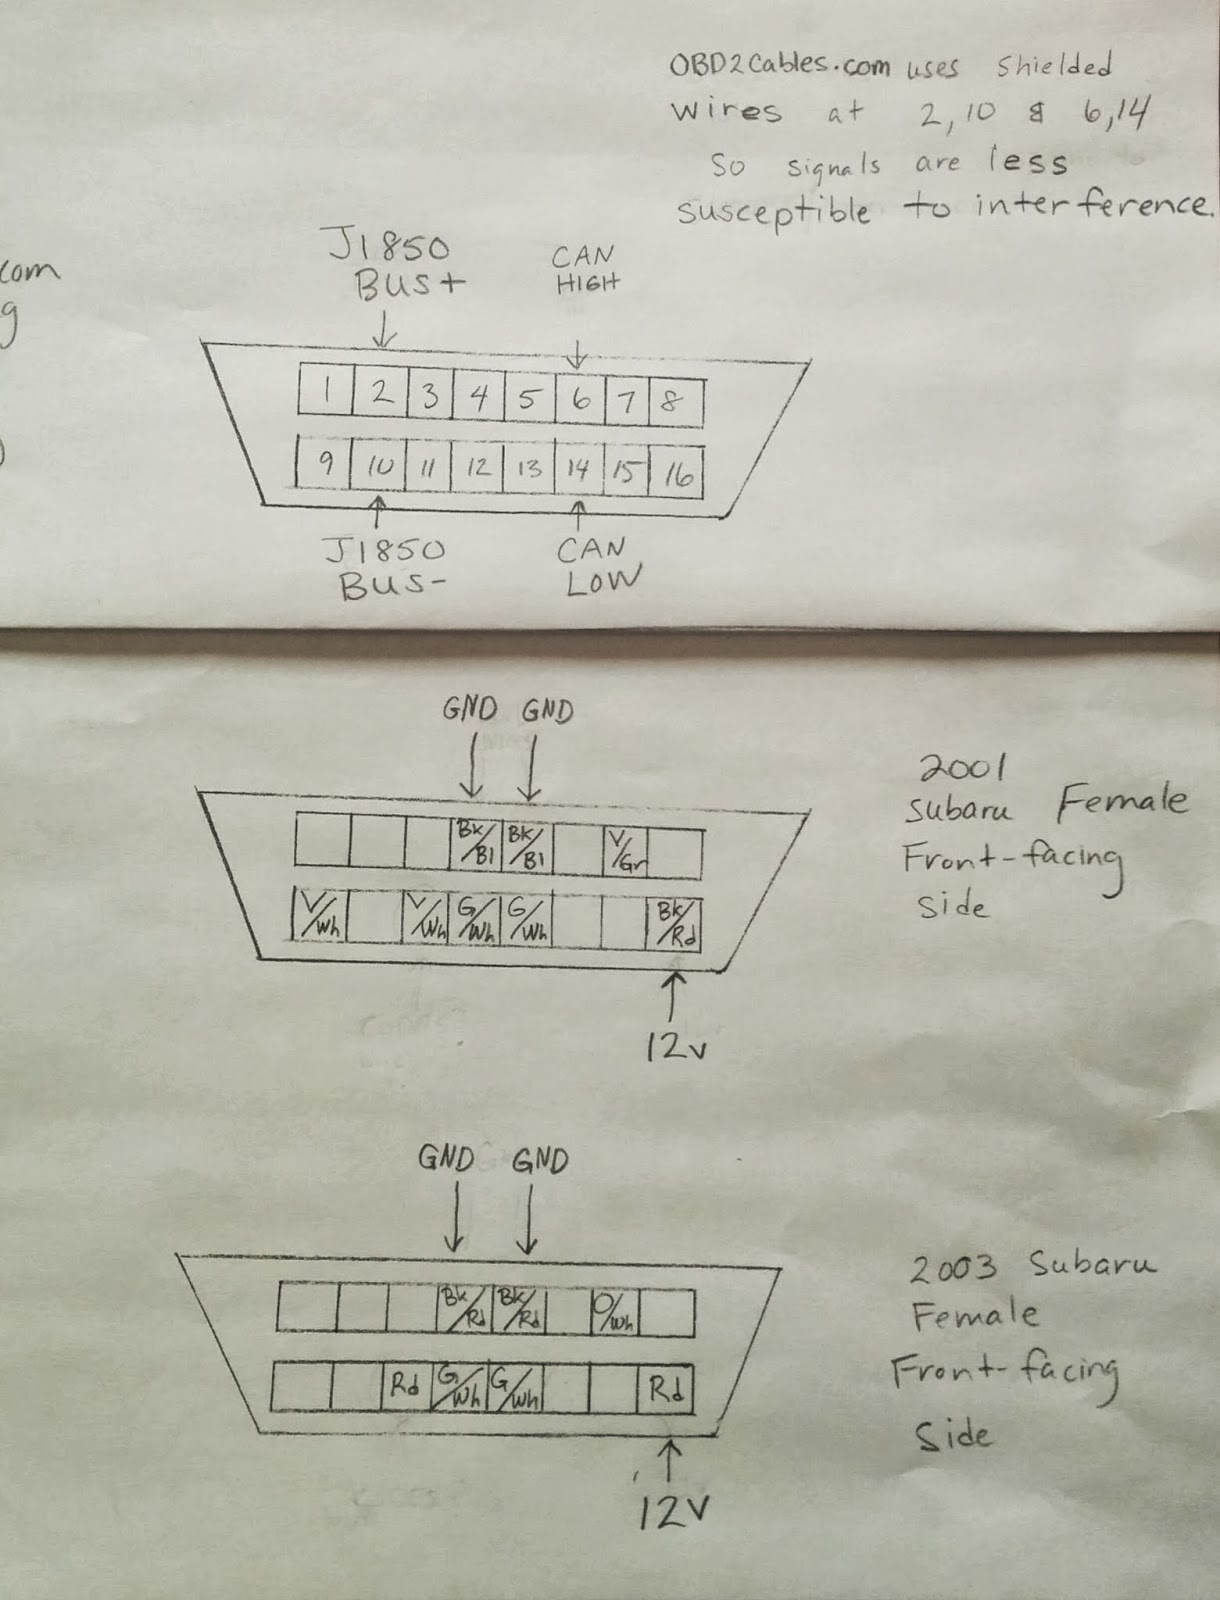 OBD2Cables.com uses shielded
wires at 2,10 & 6,14
So signals are less
susceptible to interference.
com
g
J1850
BUS+
CAN
HIGH
1 2 3 4 5 6 7 8
9 10 11 12 13 14 15 16
J1850
BUS-
CAN
LOW
GND GND
2001
Subaru Female
Front-facing
side
Bk/Bl Bk/Bl V/Gr
V/Wh V/Wh G/Wh G/Wh Bk/Rd
12v
GND GND
2003 Subaru
Female
Front-facing
Side
Bk/Rd Bk/Rd O/Wh
Rd G/Wh G/Wh Rd
12V